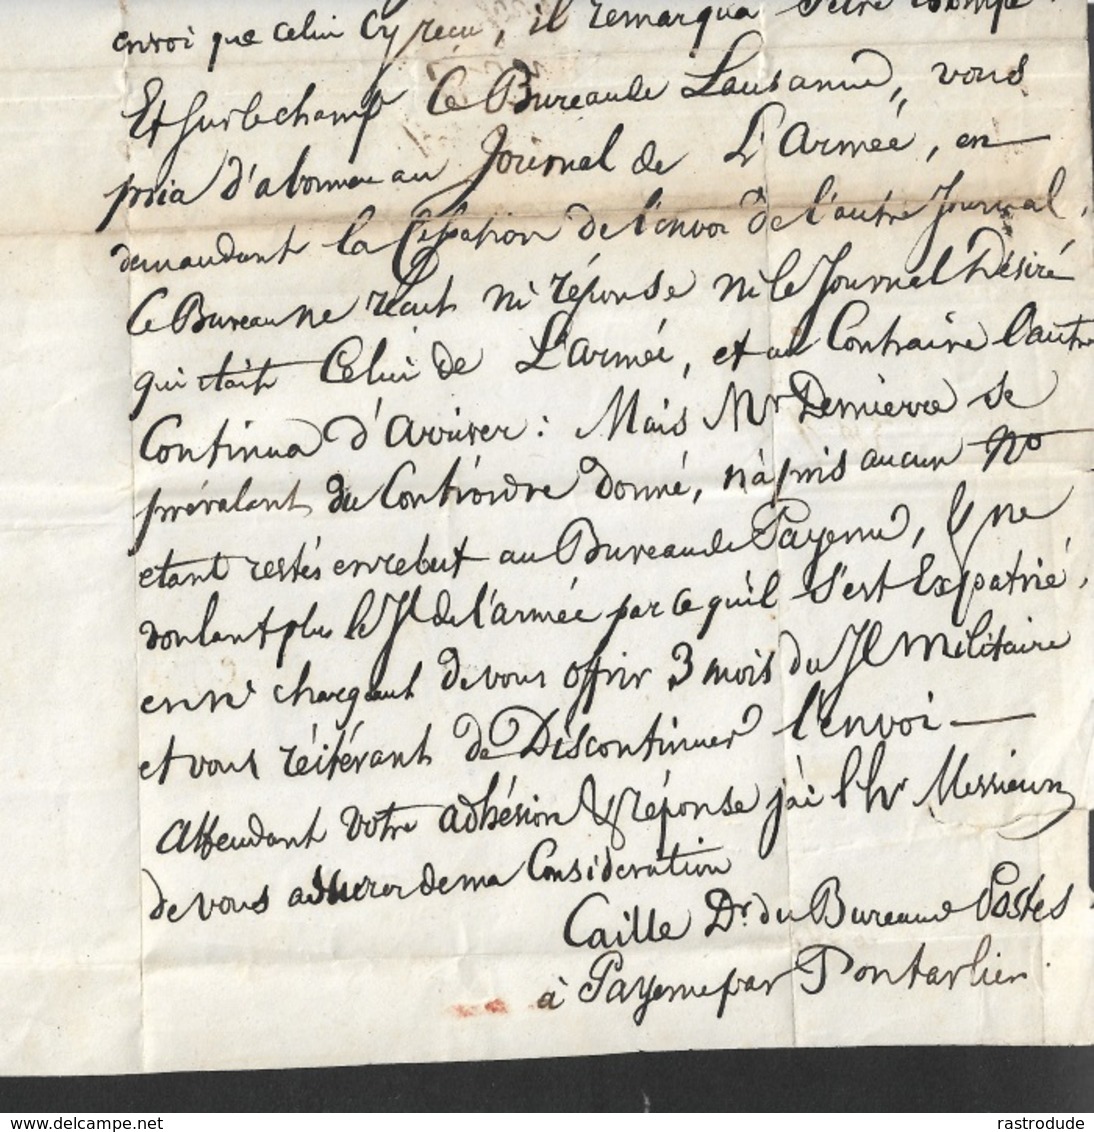 envoi que celui Cy reçu, il remarqua s'etre trompé
Et sur le champ le Bureau de Lausanne, vous
pria d'abonner au Journal de L'Armée, en
demandant la Cessation de l'envoi de l'autre Journal,
Ce Bureau ne reçut ni réponse ni le Journal Désiré
qui était Celui de L'Armée, et au Contraire l'autre
Continua d'Arriver : Mais Mr Demierre se
prévalant du Contrordre donné, n'à pris aucun No
etant restés en rebut au Bureau de Payerne, & ne
voulant plus le Jl de l'armée par ce qu'il s'est Expatrié,
en me chargeant de vous offrir 3 mois du Jl Militaire
et vous réitérant de Discontinuer l'envoi —
Attendant votre adhésion & réponse j'ai l'hr Messieurs
de vous assurer de ma Consideration
Caille Dr du Bureau de Postes
à Payerne par Pontarlier.
rastrodude